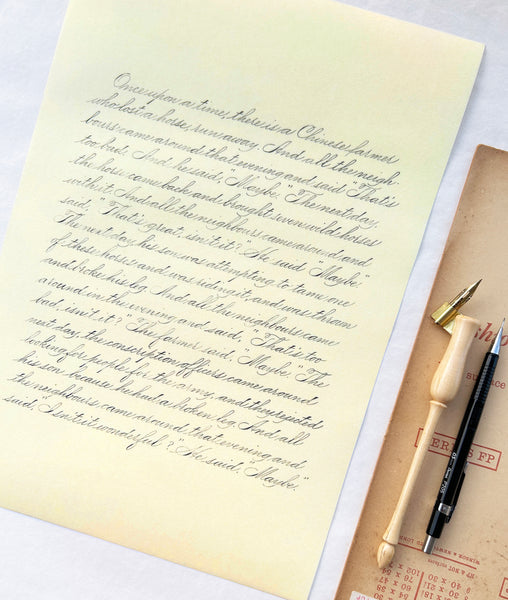 Once upon a time, there is a Chinese farmer
who lost a horse, run away. And all the neigh-
bours came around that evening and said "That's
too bad." And he said, "Maybe." The next day,
the horse came back and brought seven wild horses
with it. And all the neighbours came around and
said, "That's great, isn't it?" He said "Maybe."
The next day, his son was attempting to tame one
of these horses and was riding it, and was thrown
and broke his leg. And all the neighbours came
around in the evening and said, "That's too
bad, isn't it?" The farmer said, "Maybe." The
next day, the conscription officers came around
looking for people for the army, and they rejected
his son because he had a broken leg. And all
the neighbours came around that evening and
said, "Isn't it wonderful?" He said, "Maybe."
shop
SERIES FP